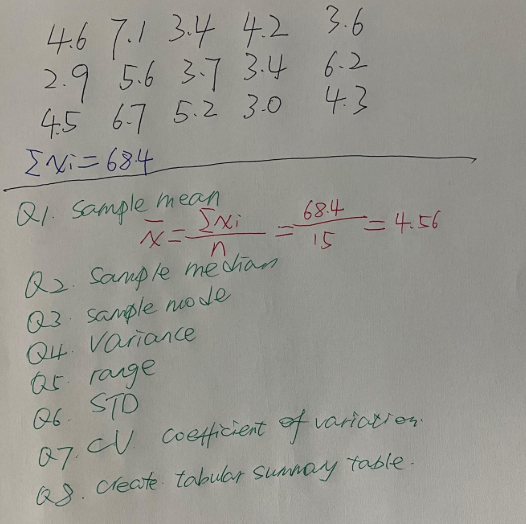 4.6 7.1 3.4 4.2 3.6
2.9 5.6 3.7 3.4 6.2
4.5 6.7 5.2 3.0 4.3
Σxi = 68.4
Q1. sample mean
x̄ = Σxi / n = 68.4 / 15 = 4.56
Q2. sample median
Q3. sample mode
Q4. variance
Q5. range
Q6. STD
Q7. CV coefficient of variation.
Q8. create tabular summay table.